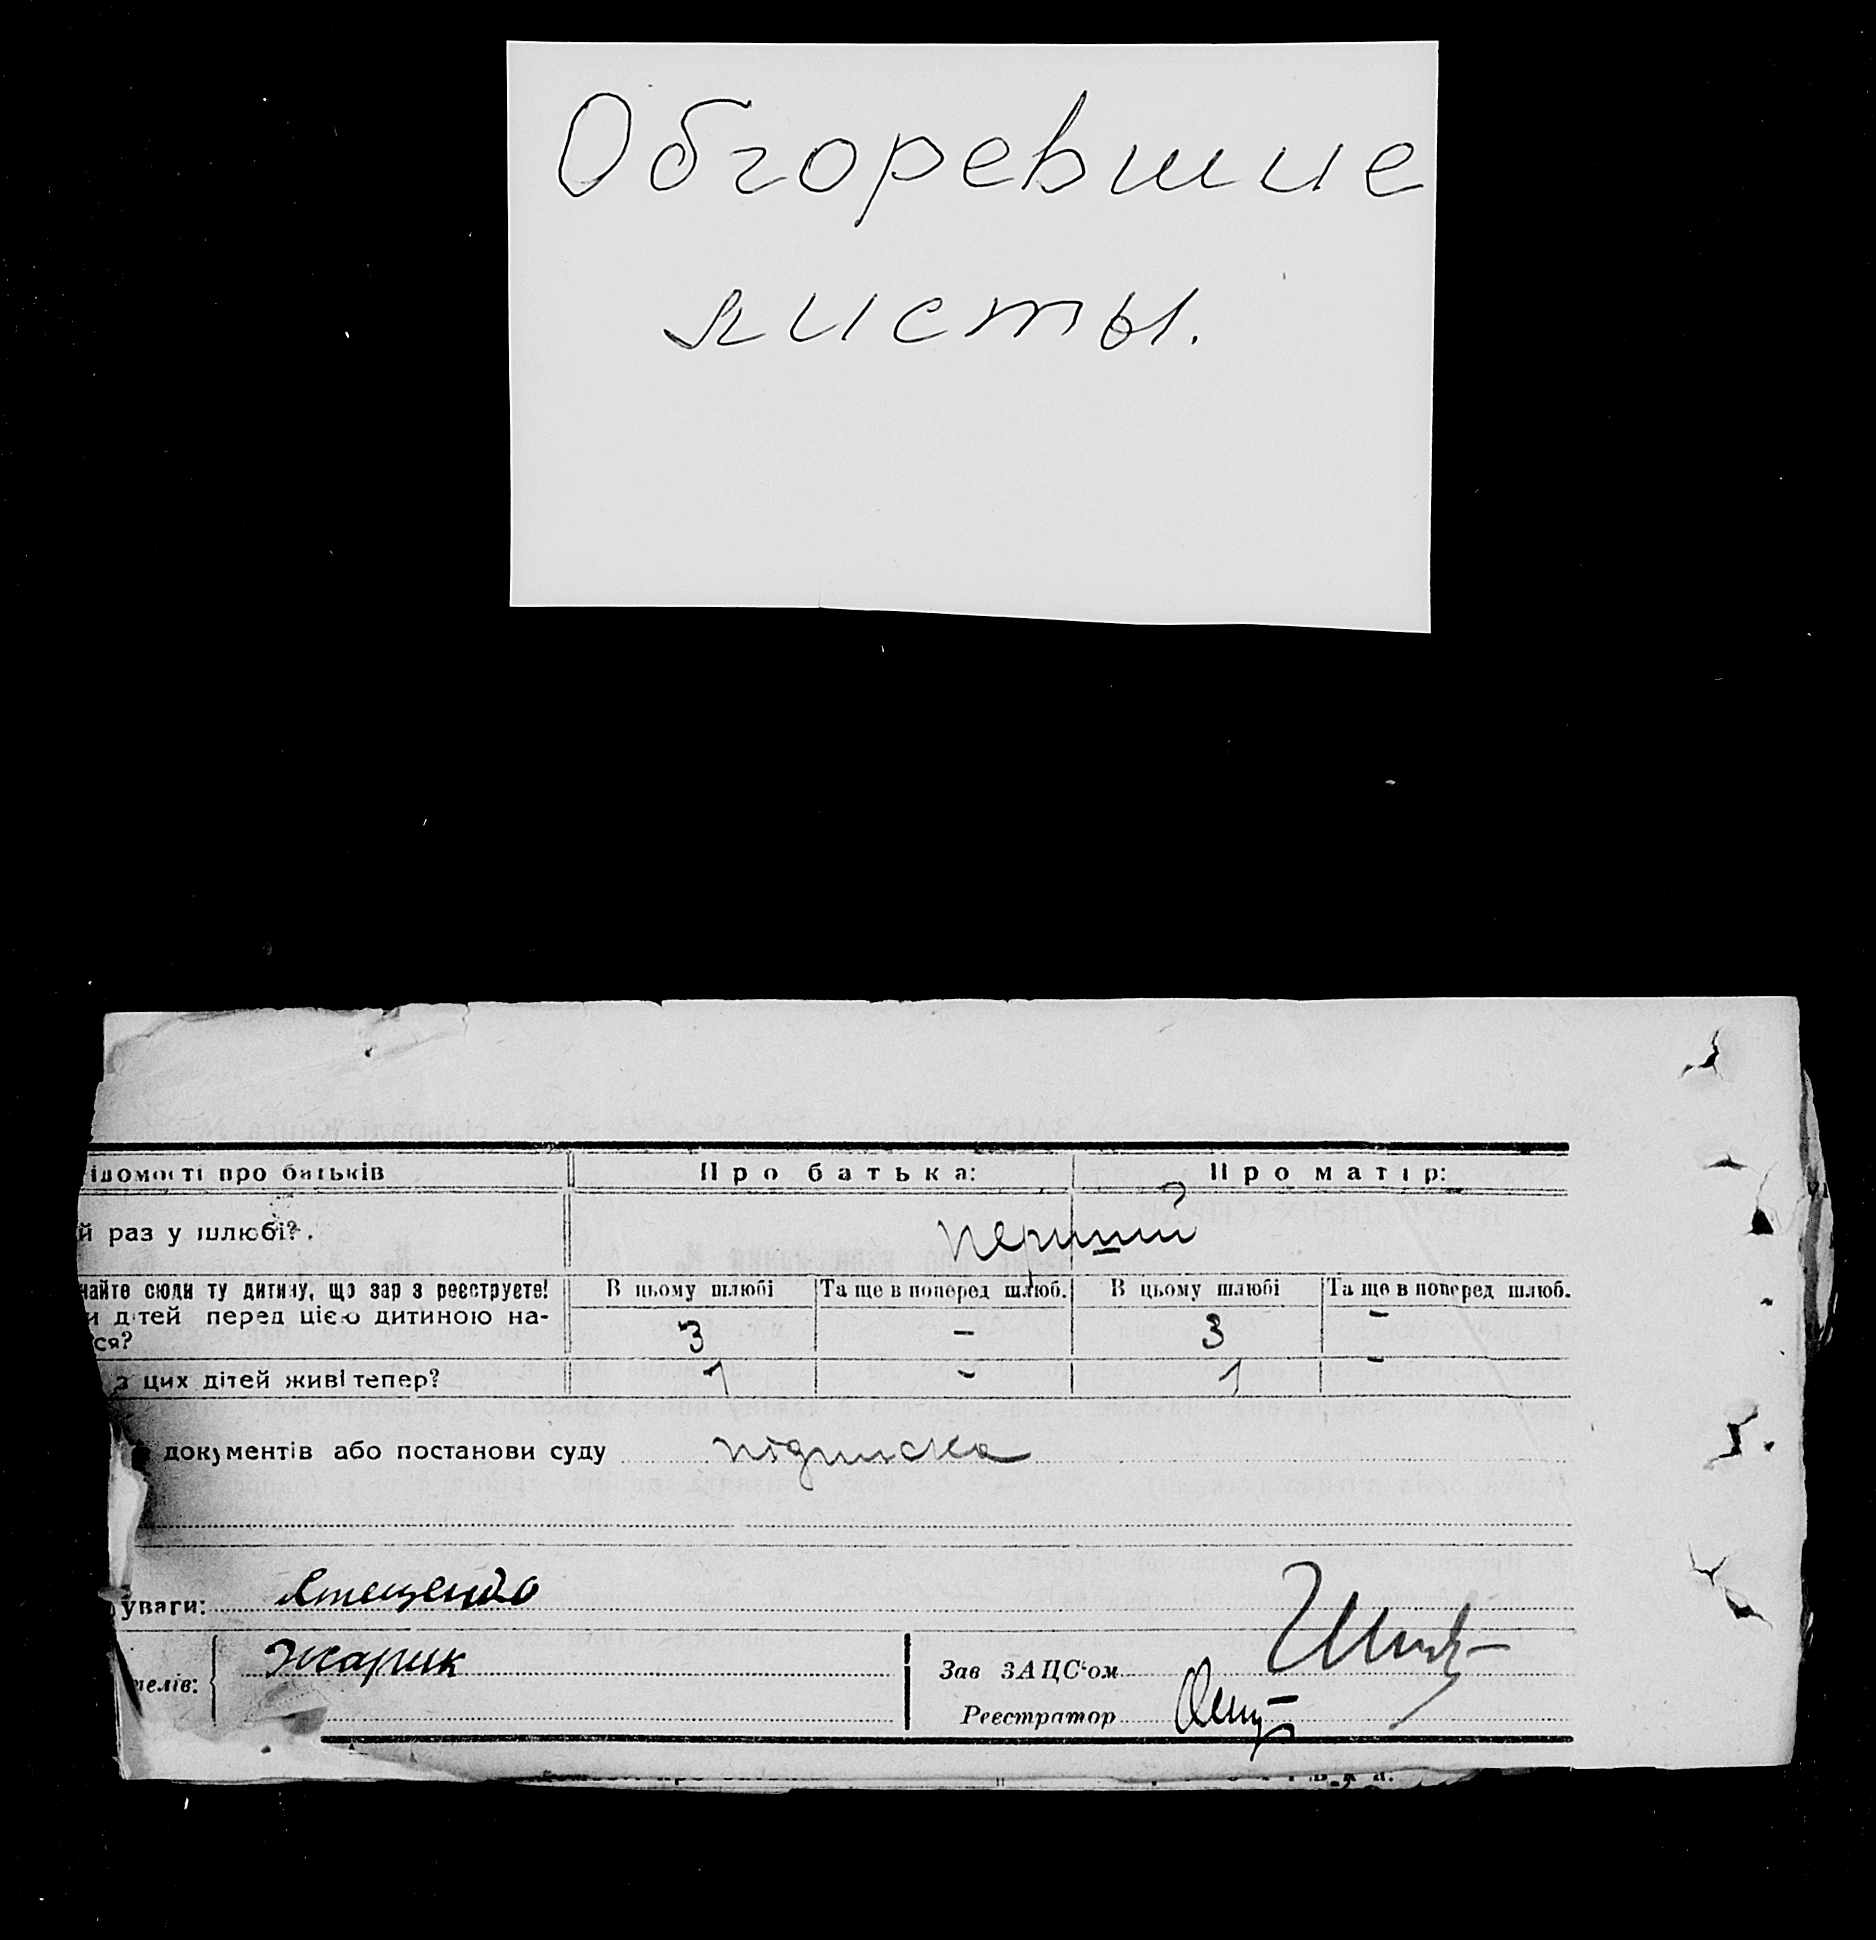 Обгоревшие
листы.
ідомості про батьків Про батька: Про матір:
й раз у шлюбі? перший
чайте сюди ту дитину, що зараз реєструєте! В цьому шлюбі Та ще в поперед шлюб. В цьому шлюбі Та ще в поперед шлюб.
и дітей перед цією дитиною на-
ся? 3 – 3 –
з цих дітей живі тепер? 1 – 1 –
документів або постанови суду підписка
уваги:
Жарик
телів:
Зав ЗАЦС'ом
Реєстратор